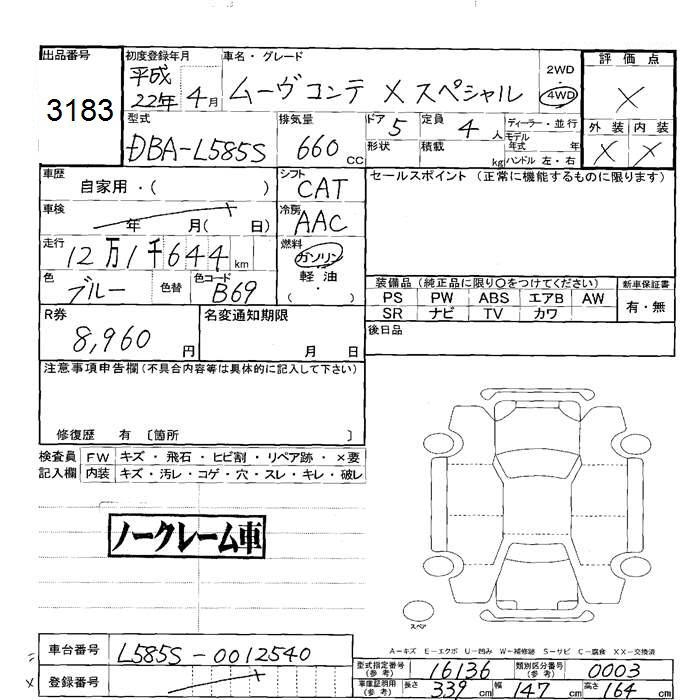 出品番号
3183
初度登録年月
平成
22年 4月
車名・グレード
ムーヴコンテ X スペシャル
2WD
・
4WD
評価点
X
外装 内装
X X
型式
DBA-L585S
排気量
660 CC
ドア 5
形状
定員 4 人
積載 kg
ディーラー・並行
モデル
年式 年
ハンドル 左・右
車歴
自家用・( )
シフト
CAT
セールスポイント (正常に機能するものに限ります)
車検
年 月( 日)
冷房
AAC
走行
12万1千644 km
燃料
ガソリン
軽油
( ・ )
色
ブルー
色替
色コード
B69
装備品 (純正品に限り〇をつけてください)
PS PW ABS エアB AW
SR ナビ TV カワ
新車保証書
有・無
R券
8,960 円
名変通知期限
月 日
後日品
注意事項申告欄 (不具合内容等は具体的に記入して下さい)
修復歴 有 〔箇所 〕
検査員
記入欄
FW キズ・飛石・ヒビ割・リペア跡・×要
内装 キズ・汚レ・コゲ・穴・スレ・キレ・破レ
ノークレーム車
スペア
A−キズ E−エクボ U−凹み W−補修跡 S−サビ C−腐食 XX−交換済
車台番号
L585S-0012540
登録番号
型式指定番号
(参考)
16136
類別区分番号
(参考)
0003
車庫証明用
(参考)
長さ 339 cm 幅 147 cm 高さ 164 cm